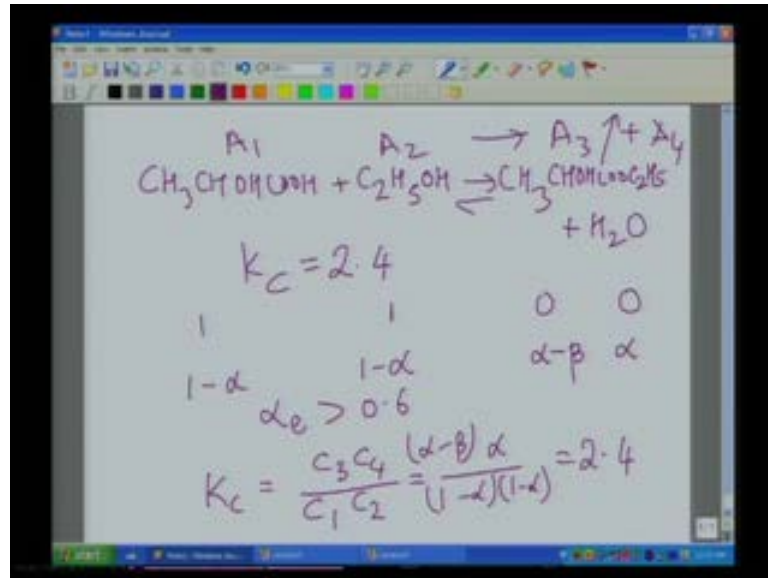 A1 A2 → A3 ↑ + A4
CH3CHOHCOOH + C2H5OH ⇌ CH3CHOHCOOC2H5
+ H2O
Kc = 2.4
1 1 0 0
1-α 1-α α-β α
αe > 0.6
Kc = C3 C4 / C1 C2 = (α-β) α / (1-α)(1-α) = 2.4